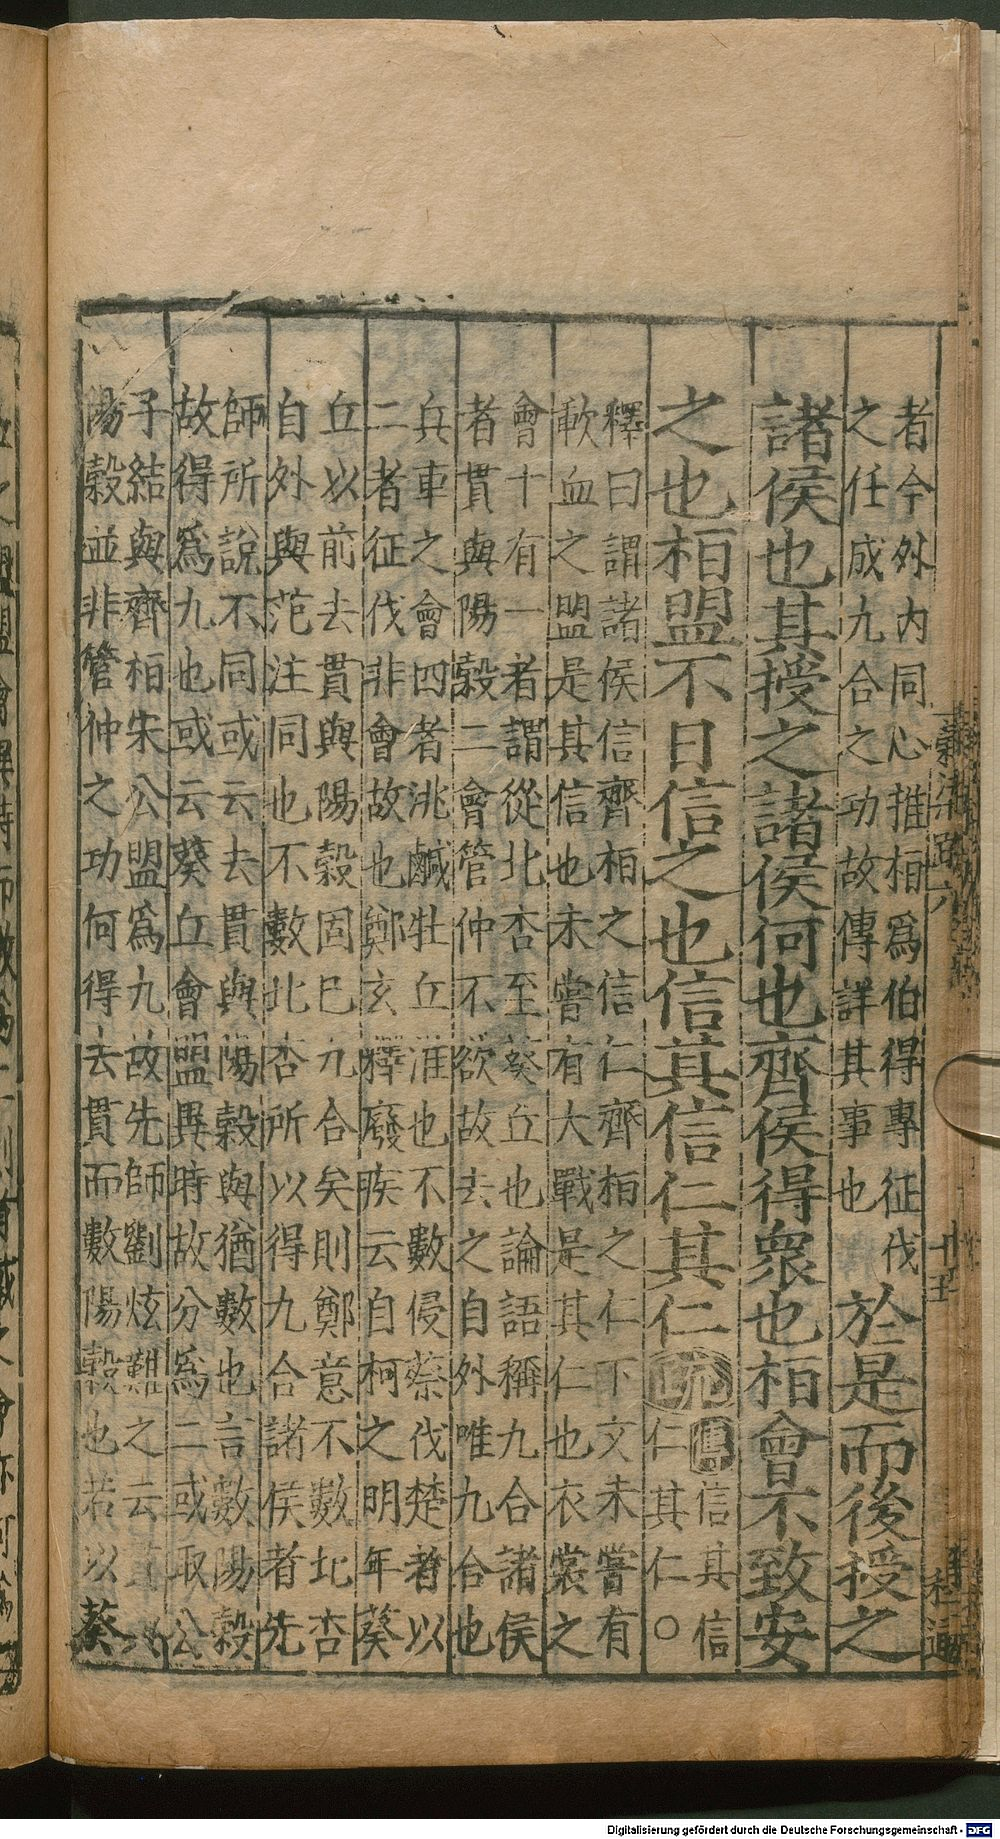 者今外内同心推桓爲伯得專征伐
之任成九合之功故傳詳其事也
於是而後授之
諸侯也其授之諸侯何也齊侯得衆也桓會不致安
之也桓盟不日信之也信其信仁其仁疏
傳信其信
仁其仁○
釋曰謂諸侯信齊桓之信仁齊桓之仁下文未嘗有
歃血之盟是其信也未嘗有大戰是其仁也衣裳之
會十有一者謂從北杏至葵丘也論語稱九合諸侯
者貫與陽穀二會管仲不欲故去之自外唯九合也
兵車之會四者洮鹹牡丘淮也不數侵蔡伐楚者以
二者征伐非會故也鄭玄釋廢疾云自柯之明年葵
丘以前去貫與陽穀固已九合矣則鄭意不數北杏
自外與范注同也不數北杏所以得九合諸侯者先
師所說不同或云去貫與陽穀與猶數也言數陽穀
故得爲九也或云葵丘會盟異時故分爲二或取公
子結與齊桓宋公盟爲九故先師劉炫難之云以
陽穀並非管仲之功何得去貫而數陽穀也若以葵
Digitalisierung gefördert durch die Deutsche Forschungsgemeinschaft - DFG